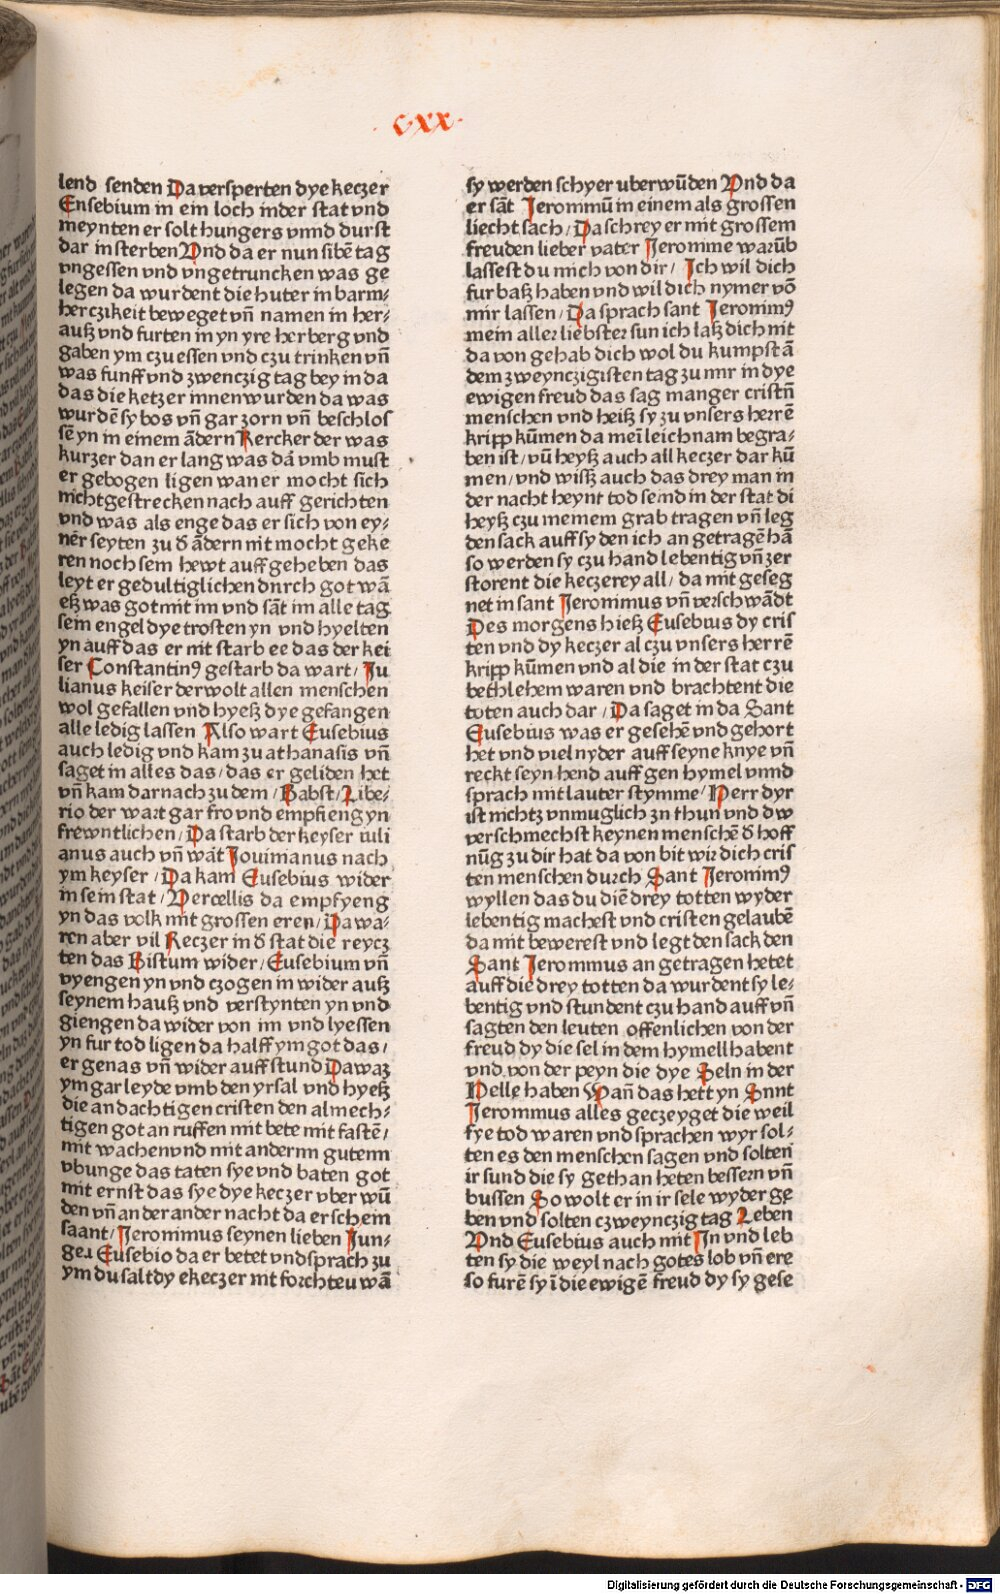 cxx.
lend senden Da versperten dye keczer
Ensebium in ein loch inder stat vnd
meynten er solt hungers vnnd durst
dar in sterben Vnd da er nun sibē tag
vngessen vnd vngetruncken was ge
legen da wurdent die huter in barm⸗
herczikeit beweget vñ namen in her⸗
auß vnd furten in yn yre herberg vnd
gaben ym czu essen vnd czu trinken vñ
was funff vnd zwenczig tag bey in da
das die ketzer innen wurden da was
wurdē sy bos vñ gar zorn vñ beschlos
sē yn in einem ādern Kercker der was
kurzer dan er lang was dā vmb must
er gebogen ligen wan er mocht sich
nicht gestrecken nach auff gerichten
vnd was als enge das er sich von ey⸗
nēr seyten zu d̄ ādern nit mocht geke
ren noch sem hewt auff geheben das
leyt er gedultiglichen dnrch got wā
eß was got mit im vnd sāt im alle tag
sem engel dye trosten yn vnd hyelten
yn auff das er mit starb ee das der kei
ser Constantinꝰ gestarb da wart / Ju
lianus keiser der wolt allen menschen
wol gefallen vnd hyeß dye gefangen
alle ledig lassen Also wart Eusebius
auch ledig vnd kam zu athanasis vñ
saget in alles das / das er geliden het
vñ kam darnach zu dem / Babst / Libe⸗
rio der wart gar fro vnd empfieng yn
frewntlichen / Da starb der keyser iuli
anus auch vñ wāt Jouimanus nach
ym keyser / Da kam Eusebius wider
in sein stat / Vercellis da empfyeng
yn das volk mit grossen eren / Da wa⸗
ren aber vil Keczer in d̄ stat die reycz
ten das Bistum wider / Eusebium vñ
vyengen yn vnd czogen in wider auß
seynem hauß vnd verstynten yn vnd
giengen da wider von im vnd lyessen
yn fur tod ligen da halff ym got das /
er genas vñ wider auff stund Da waz
ym gar leyde vmb den yrsal vnd hyeß
die andachtigen cristen den almech⸗
tigen got an ruffen mit bete mit fastē /
mit wachen vnd mit anderm gutem
vbunge das taten sye vnd baten got
mit ernst das sye dye keczer vber wū
den vñ an der ander nacht da erschem
saant / Jeronimus seynen lieben Jun⸗
ger Eusebio da er betet vnd sprach zu
ym du salt dy ekeczer nit forchteu wā
sy werden schyer uberwūden Vnd da
er sāt Jerommū in einem als grossen
liecht sach / Da schrey er mit grossem
freuden lieber vater Jeromme warūb
lassest du mich von dir / Ich wil dich
fur baß haben vnd wil dich nymer vō
mir lassen / Da sprach sant Jeronimꝰ
mein aller liebster sun ich laß dich nit
da von gehab dich wol du kumpst ā
dem zweynczigisten tag zu mir in dye
ewigen freud das sag manger cristñ
menschen vnd heiß sy zu vnsers herrē
kripp kūmen da mei̅ leichnam begra⸗
ben ist / vñ heyß auch all keczer dar kū
men / vnd wisß auch das drey man in
der nacht heynt tod seind in der stat di
heyß czu memem grab tragen vñ leg
den sack auff sy den ich an getragē hā
so werden sy czu hand lebentig vñ zer
storent die keczerey all / da mit geseg
net in sant Jeronimus vñ verschwādt
Des morgens hieß Eusebius dy cris
ten vnd dy keczer al czu vnsers herrē
kripp kūmen vnd al die in der stat czu
bethlehem waren vnd brachtent die
toten auch dar / Da saget in da Sant
Eusebius was er gesehē vnd gehort
het vnd viel nyder auff seyne knye vñ
reckt seyn hend auff gen hymel vnnd
sprach mit lauter stymme / Herr dyr
ist nichtz vnmuglich zn thun vnd dw
verschmechst keynen menschē d̄ hoff
nūg zu dir hat da von bit wir dich cris
ten menschen durch Sant Jeronimꝰ
wyllen das du diē drey totten wyder
lebentig machest vnd cristen gelaubē
da mit bewerest vnd legt den sack den
Sant Jerommus an getragen hetet
auff die drey totten da wurdent sy le⸗
bentig vnd stundent czu hand auff vñ
sagten den leuten offenlichen von der
freud dy die sel in dem hymell habent
vnd von der peyn die dye Seln in der
Helle haben Wañ das hett yn Snnt
Jerommus alles geczeyget die weil
fye tod waren vnd sprachen wyr sol⸗
ten es den menschen sagen vnd solten
ir sund die sy gethan heten bessern vñ
bussen So wolt er in ir sele wyder ge
ben vnd solten czweynczig tag Leben
Vnd Eusebius auch mit Jn vnd leb
ten sy die weyl nach gotes lob vñ ere
so furē sy ī die ewigē freud dy sy gese
Digitalisierung gefördert durch die Deutsche Forschungsgemeinschaft - DFG